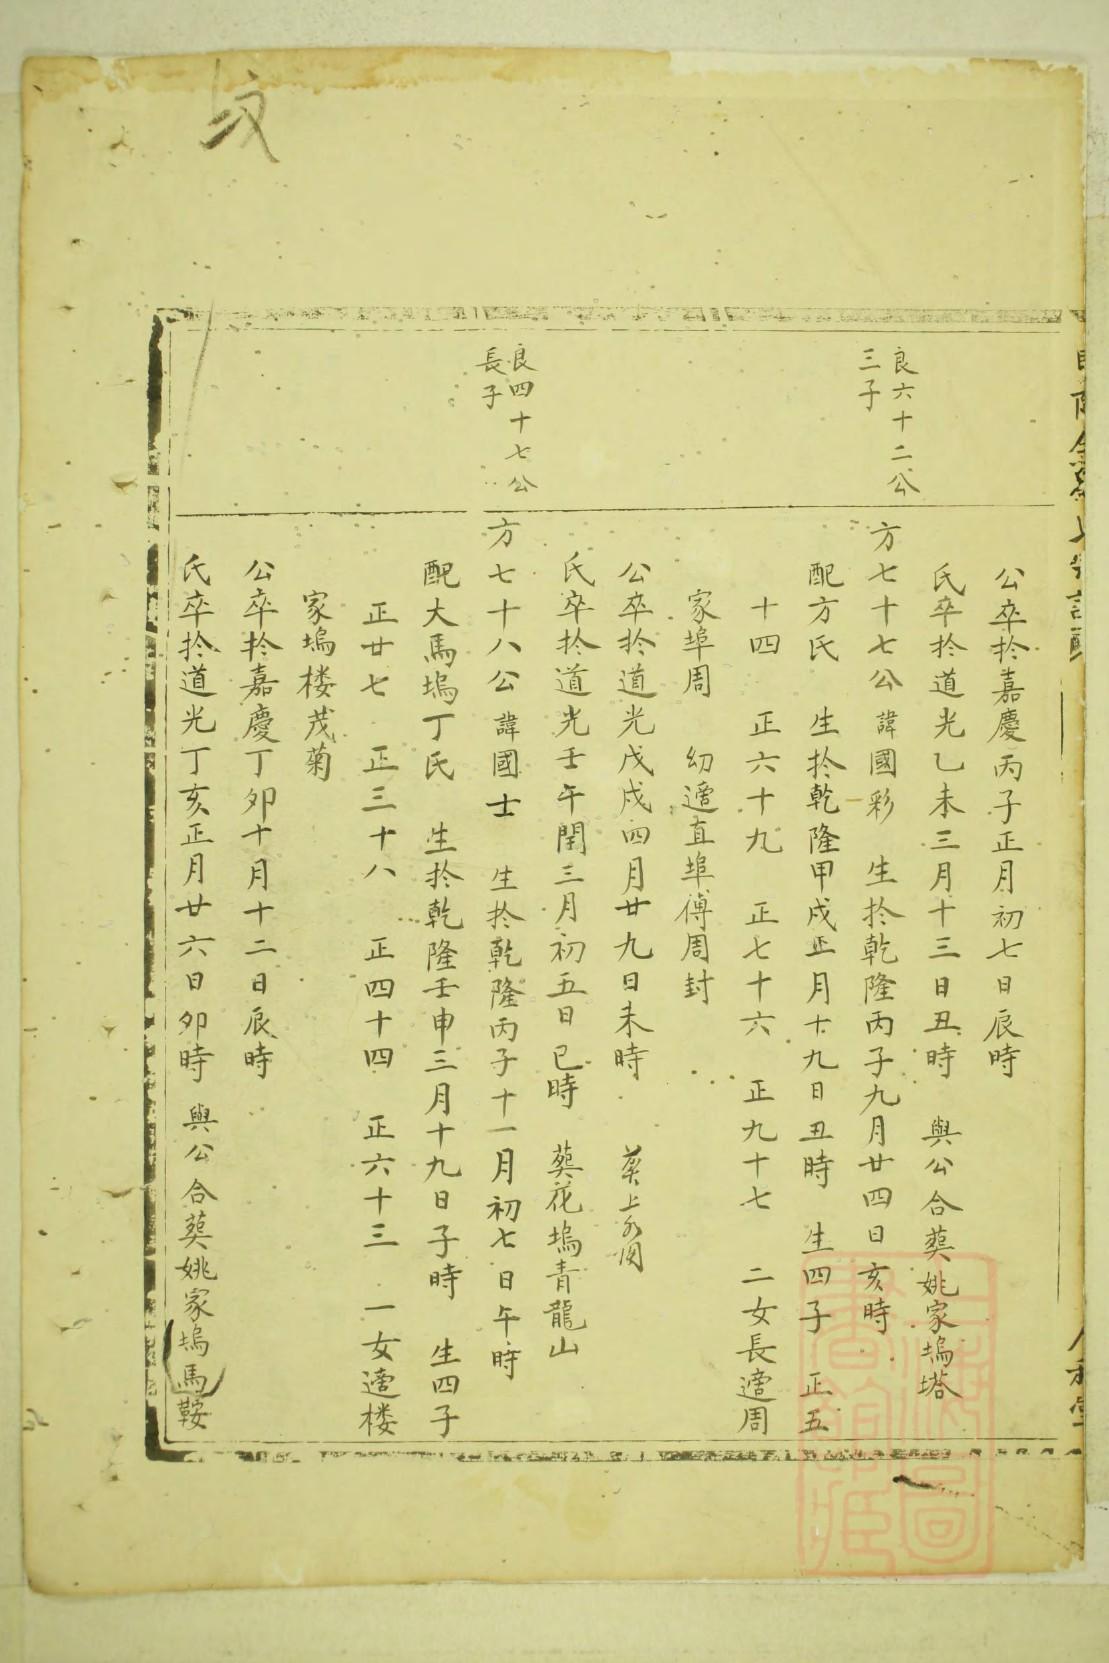 公卒於嘉慶丙子正月初七日辰時
氏卒於道光乙未三月十三日丑時 與公合葬姚家塢塔
良六十二公
三子
方七十七公諱國彩 生於乾隆丙子九月廿四日亥時
配方氏 生於乾隆甲戌正月十九日丑時 生四子 正五
十四 正六十九 正七十六 正九十七 二女長適周
家埠周 幼適直埠傅周封
公卒於道光戊戌四月廿九日未時 葬上
氏卒於道光壬午閏三月初五日巳時 葬花塢青龍山
良四十七公
長子
方七十八公諱國士 生於乾隆丙子十一月初七日午時
配大馬塢丁氏 生於乾隆壬申三月十九日子時 生四子
正廿七 正三十八 正四十四 正六十三 一女適楼
家塢楼茂菊
公卒於嘉慶丁卯十月十二日辰時
氏卒於道光丁亥正月廿六日卯時 與公合葬姚家塢馬鞍